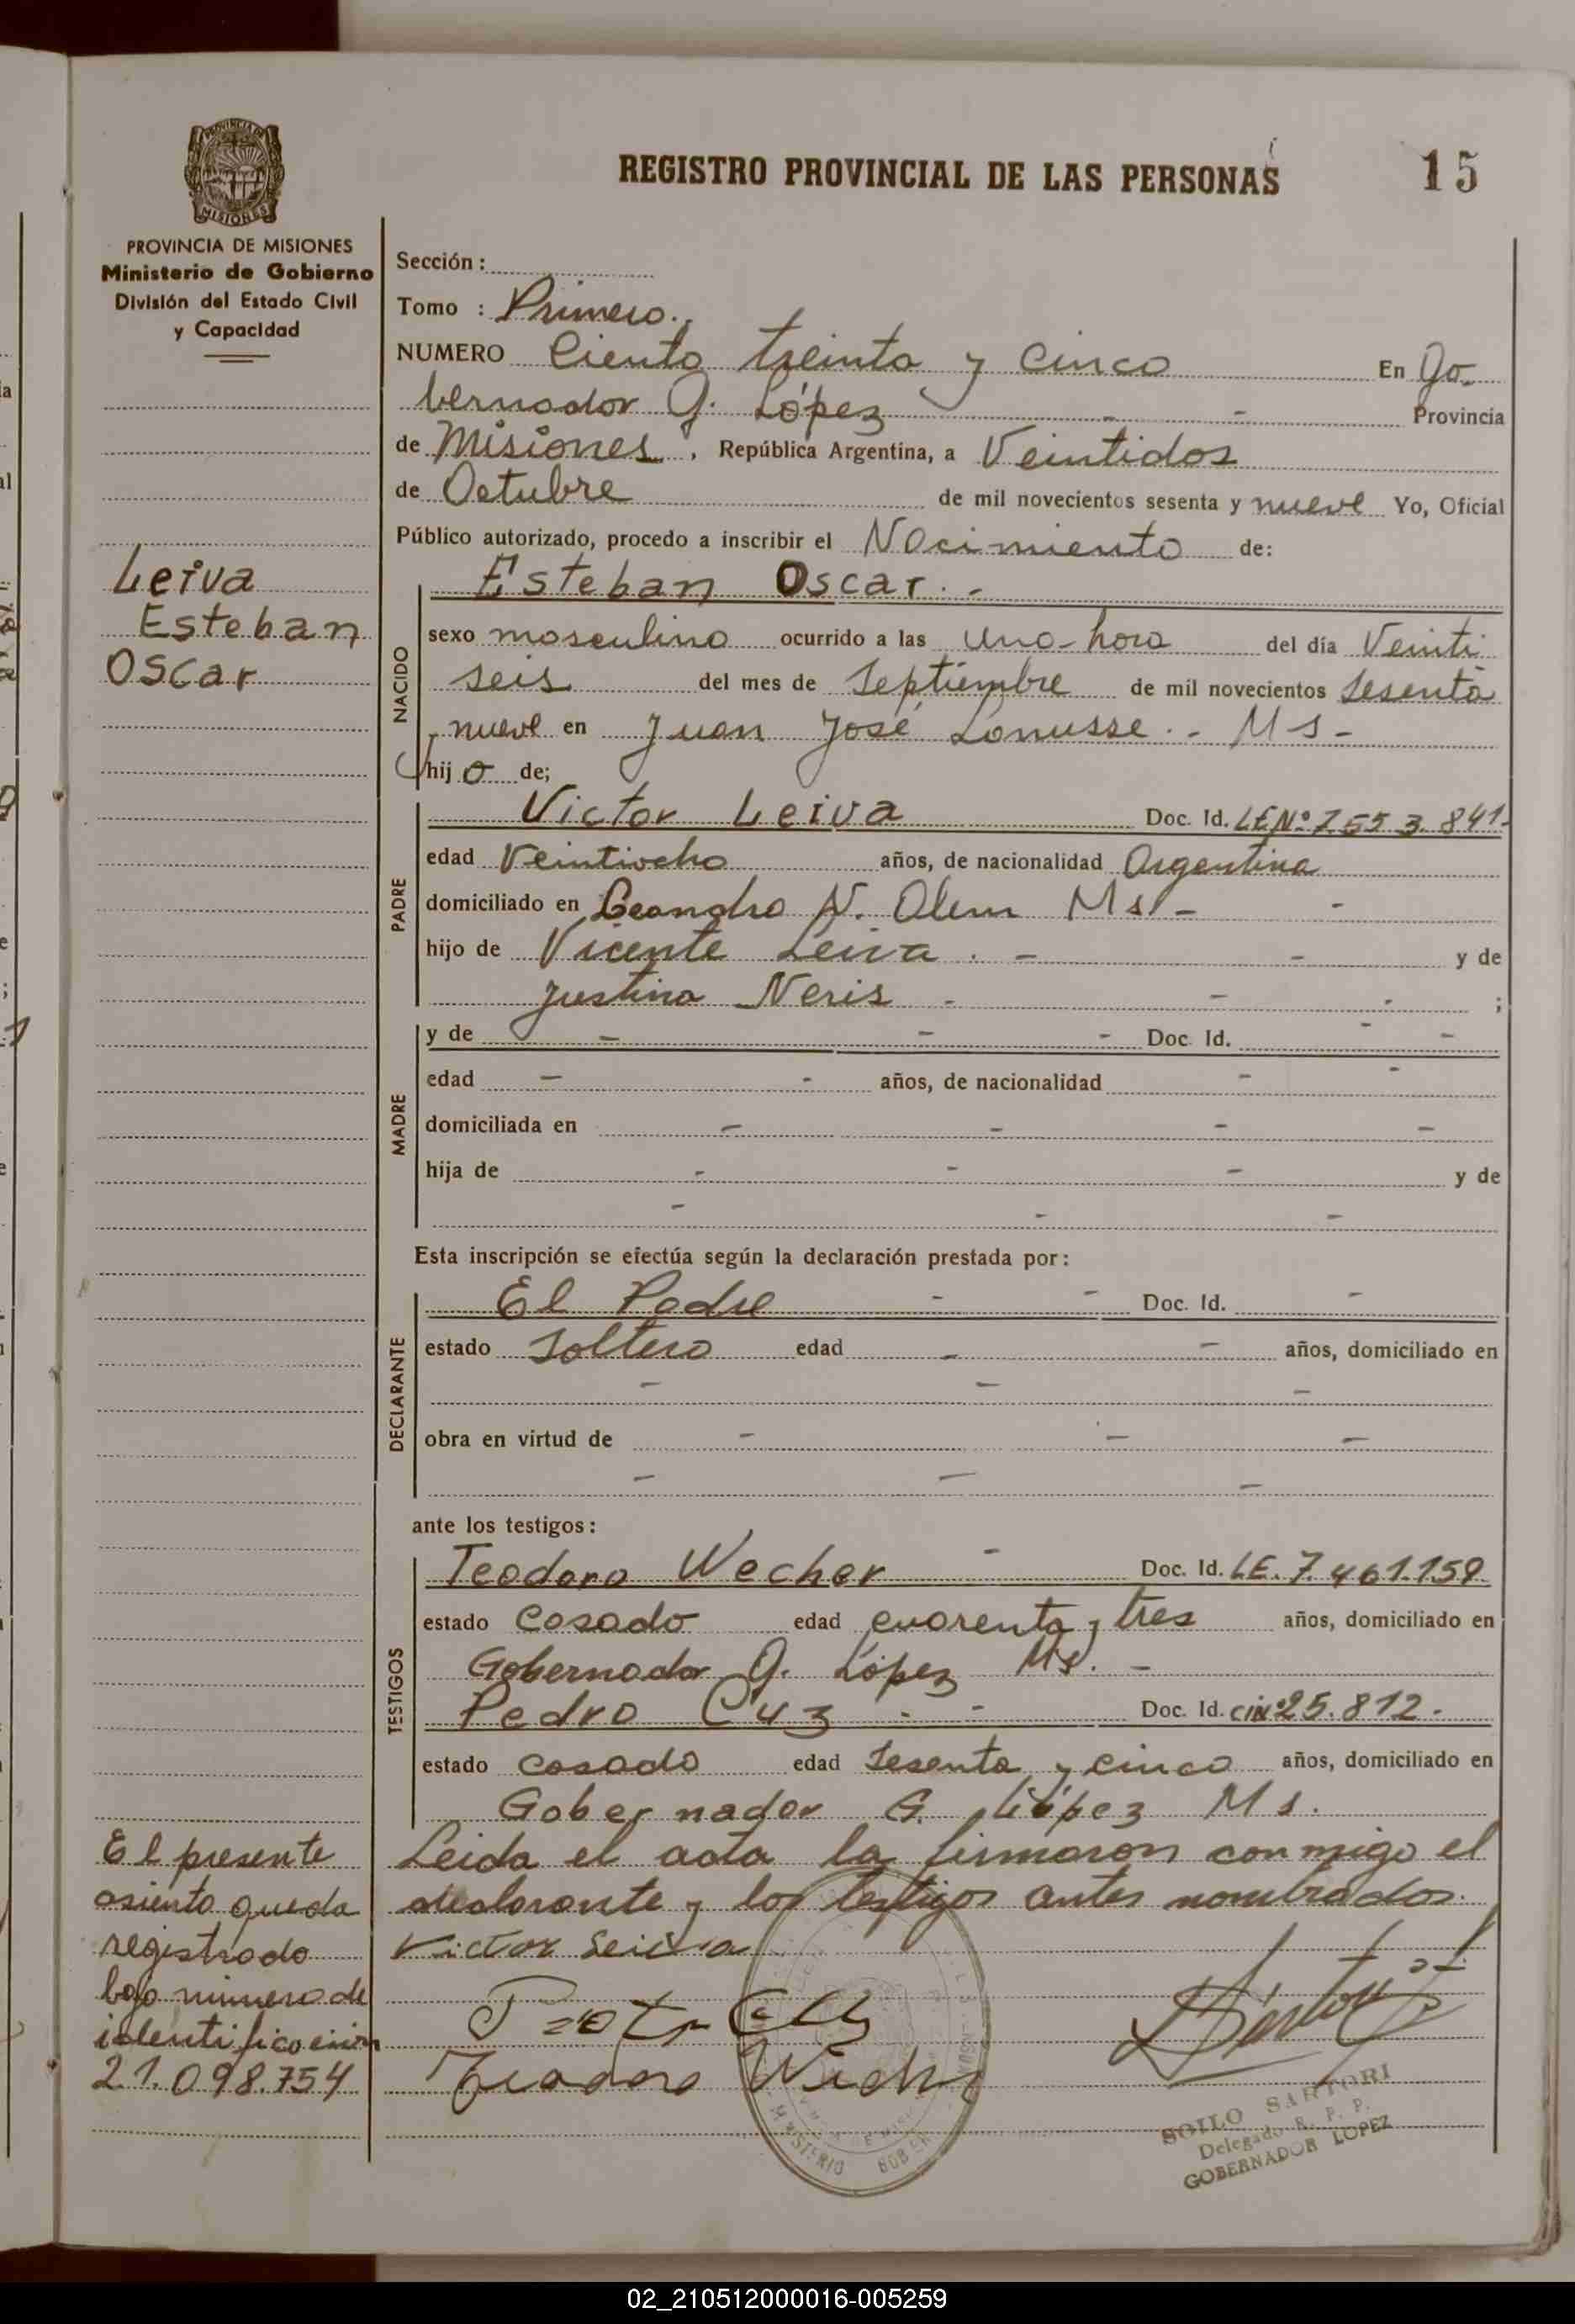 REGISTRO PROVINCIAL DE LAS PERSONAS 15
PROVINCIA DE
MISIONES
PROVINCIA DE MISIONES
Ministerio de Gobierno
División del Estado Civil
y Capacidad
Leiva
Esteban
Oscar
Sección :
Tomo : Primero.
NUMERO Ciento treinta y cinco En Go-
bernador G. López - - Provincia
de Misiones, República Argentina, a Veintidos
de Octubre de mil novecientos sesenta y nueve Yo, Oficial
Público autorizado, procedo a inscribir el Nacimiento de:
Esteban Oscar. -
NACIDO
sexo masculino ocurrido a las Una hora del día Veinti
seis del mes de Septiembre de mil novecientos sesenta
y nueve en Juan José Lanusse. - Ms -
hijo de;
PADRE
Victor Leiva Doc. Id. LE Nº 7.553.841.
edad Veintiocho años, de nacionalidad Argentina
domiciliado en Leandro N. Alem Ms - -
hijo de Vicente Leiva. - - y de
Justina Neris - - - ;
MADRE
y de - - - Doc. Id. - -
edad - - años, de nacionalidad - -
domiciliada en - - - -
hija de - - - y de
- - -
Esta inscripción se efectúa según la declaración prestada por:
DECLARANTE
El Padre - - Doc. Id. -
estado Soltero edad - - años, domiciliado en
- - -
obra en virtud de - - -
- - -
ante los testigos:
TESTIGOS
Teodoro Wecher - Doc. Id. LE. 7.461.159
estado Casado edad cuarenta y tres años, domiciliado en
Gobernador G. López Ms. -
Pedro Cuz - - Doc. Id. CI Nº 25.812.
estado casado edad sesenta y cinco años, domiciliado en
Gobernador G. López Ms.
Leida el acta la firmaron conmigo el
declarante y los testigos antes nombrados.
Victor Leiva
Teodoro
El presente
asiento queda
registrado
bajo número de
identificación
21.098.754
MINISTERIO GOBIER
SOILO SARTORI
Delegado R. P. P.
GOBERNADOR LOPEZ
02_210512000016-005259